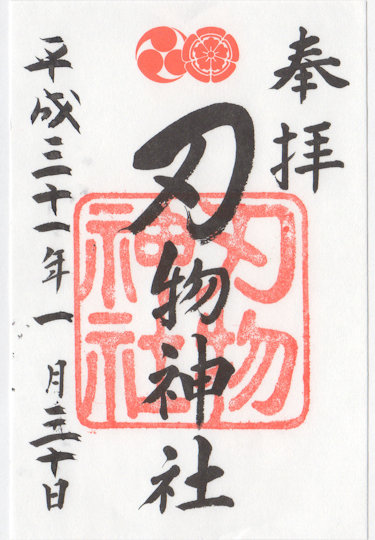 奉拝
刃物神社
刃物
神社
平成三十一年一月三十日